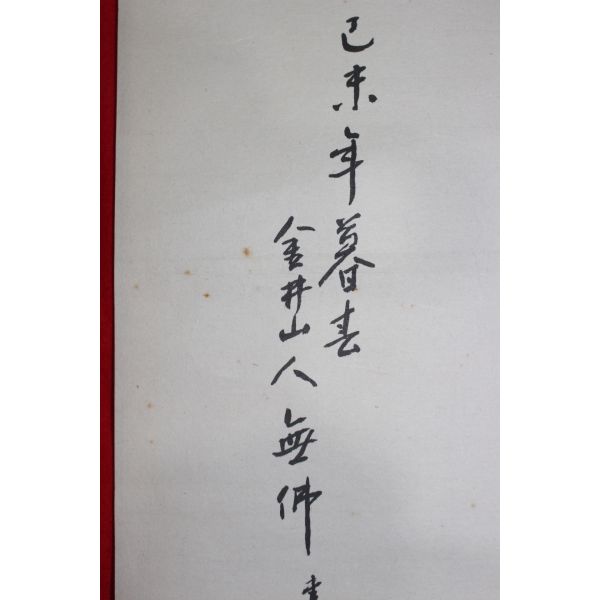 己未年暮春
金井山人無佛